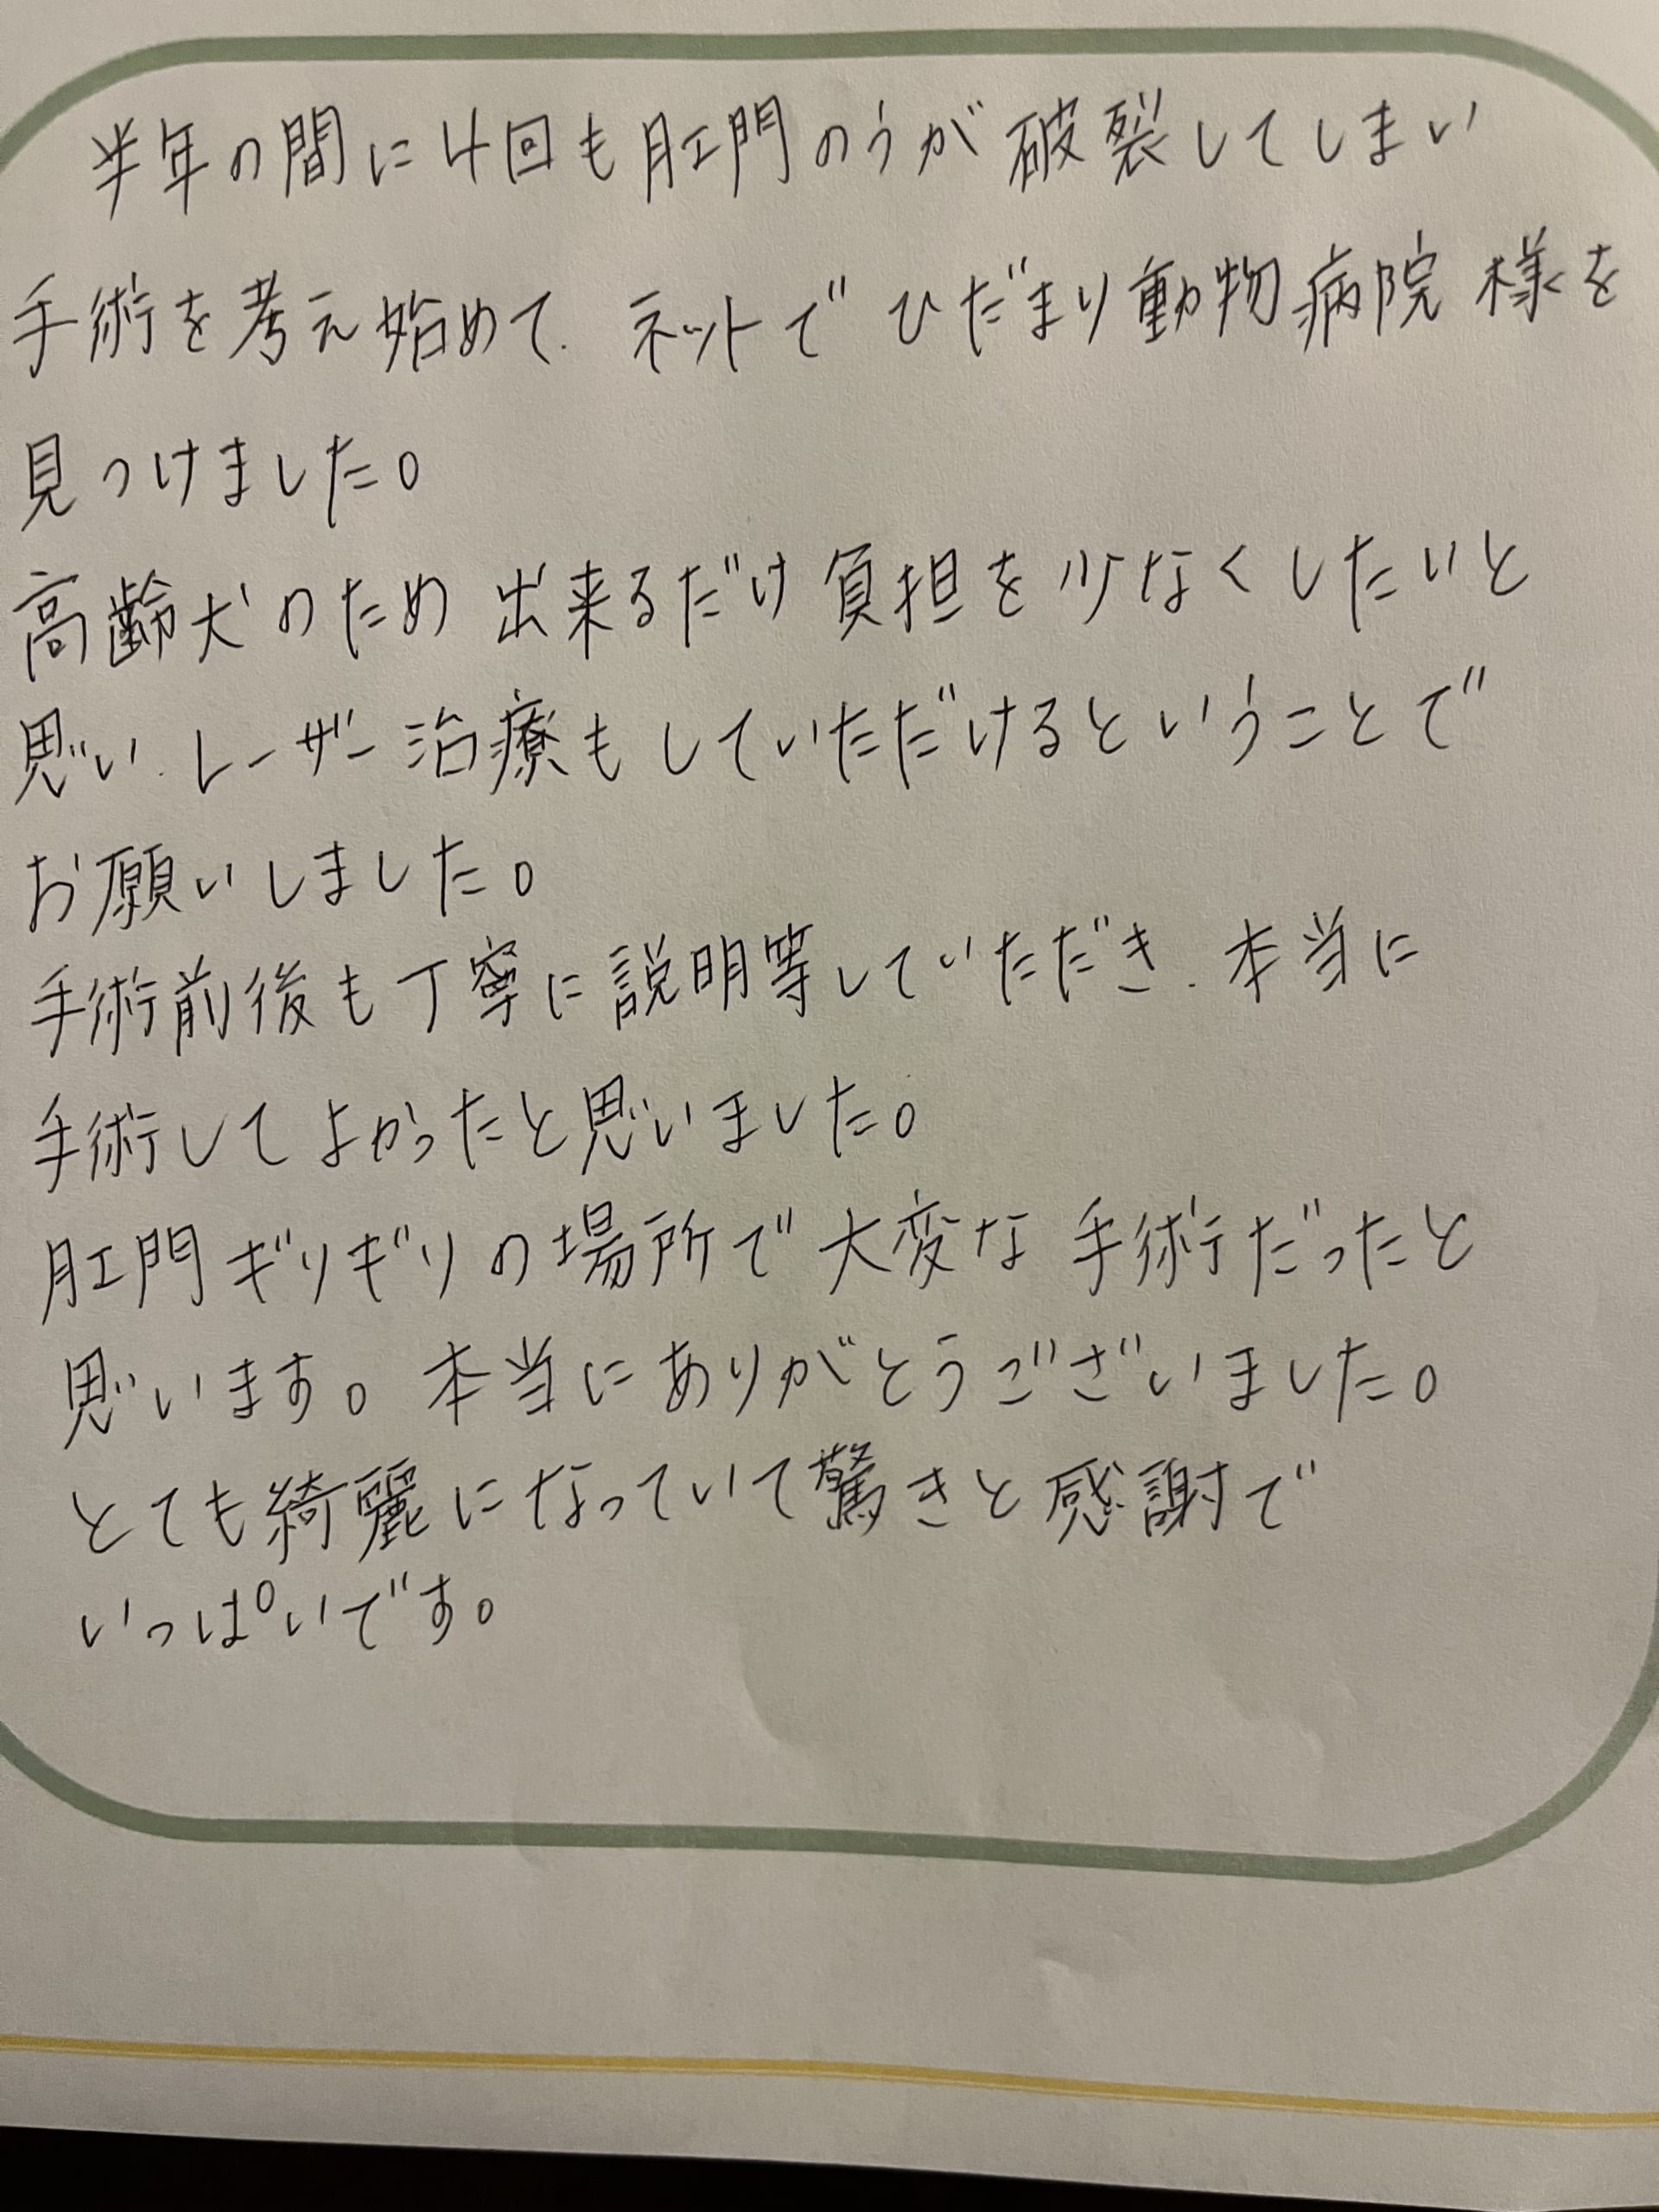 半年の間に4回も肛門のうが破裂してしまい
手術を考え始めて、ネットでひだまり動物病院様を
見つけました。
高齢犬のため出来るだけ負担を少なくしたいと
思い、レーザー治療もしていただけるということで
お願いしました。
手術前後も丁寧に説明等していただき、本当に
手術してよかったと思いました。
肛門ギリギリの場所で大変な手術だったと
思います。本当にありがとうございました。
とても綺麗になっていて驚きと感謝で
いっぱいです。